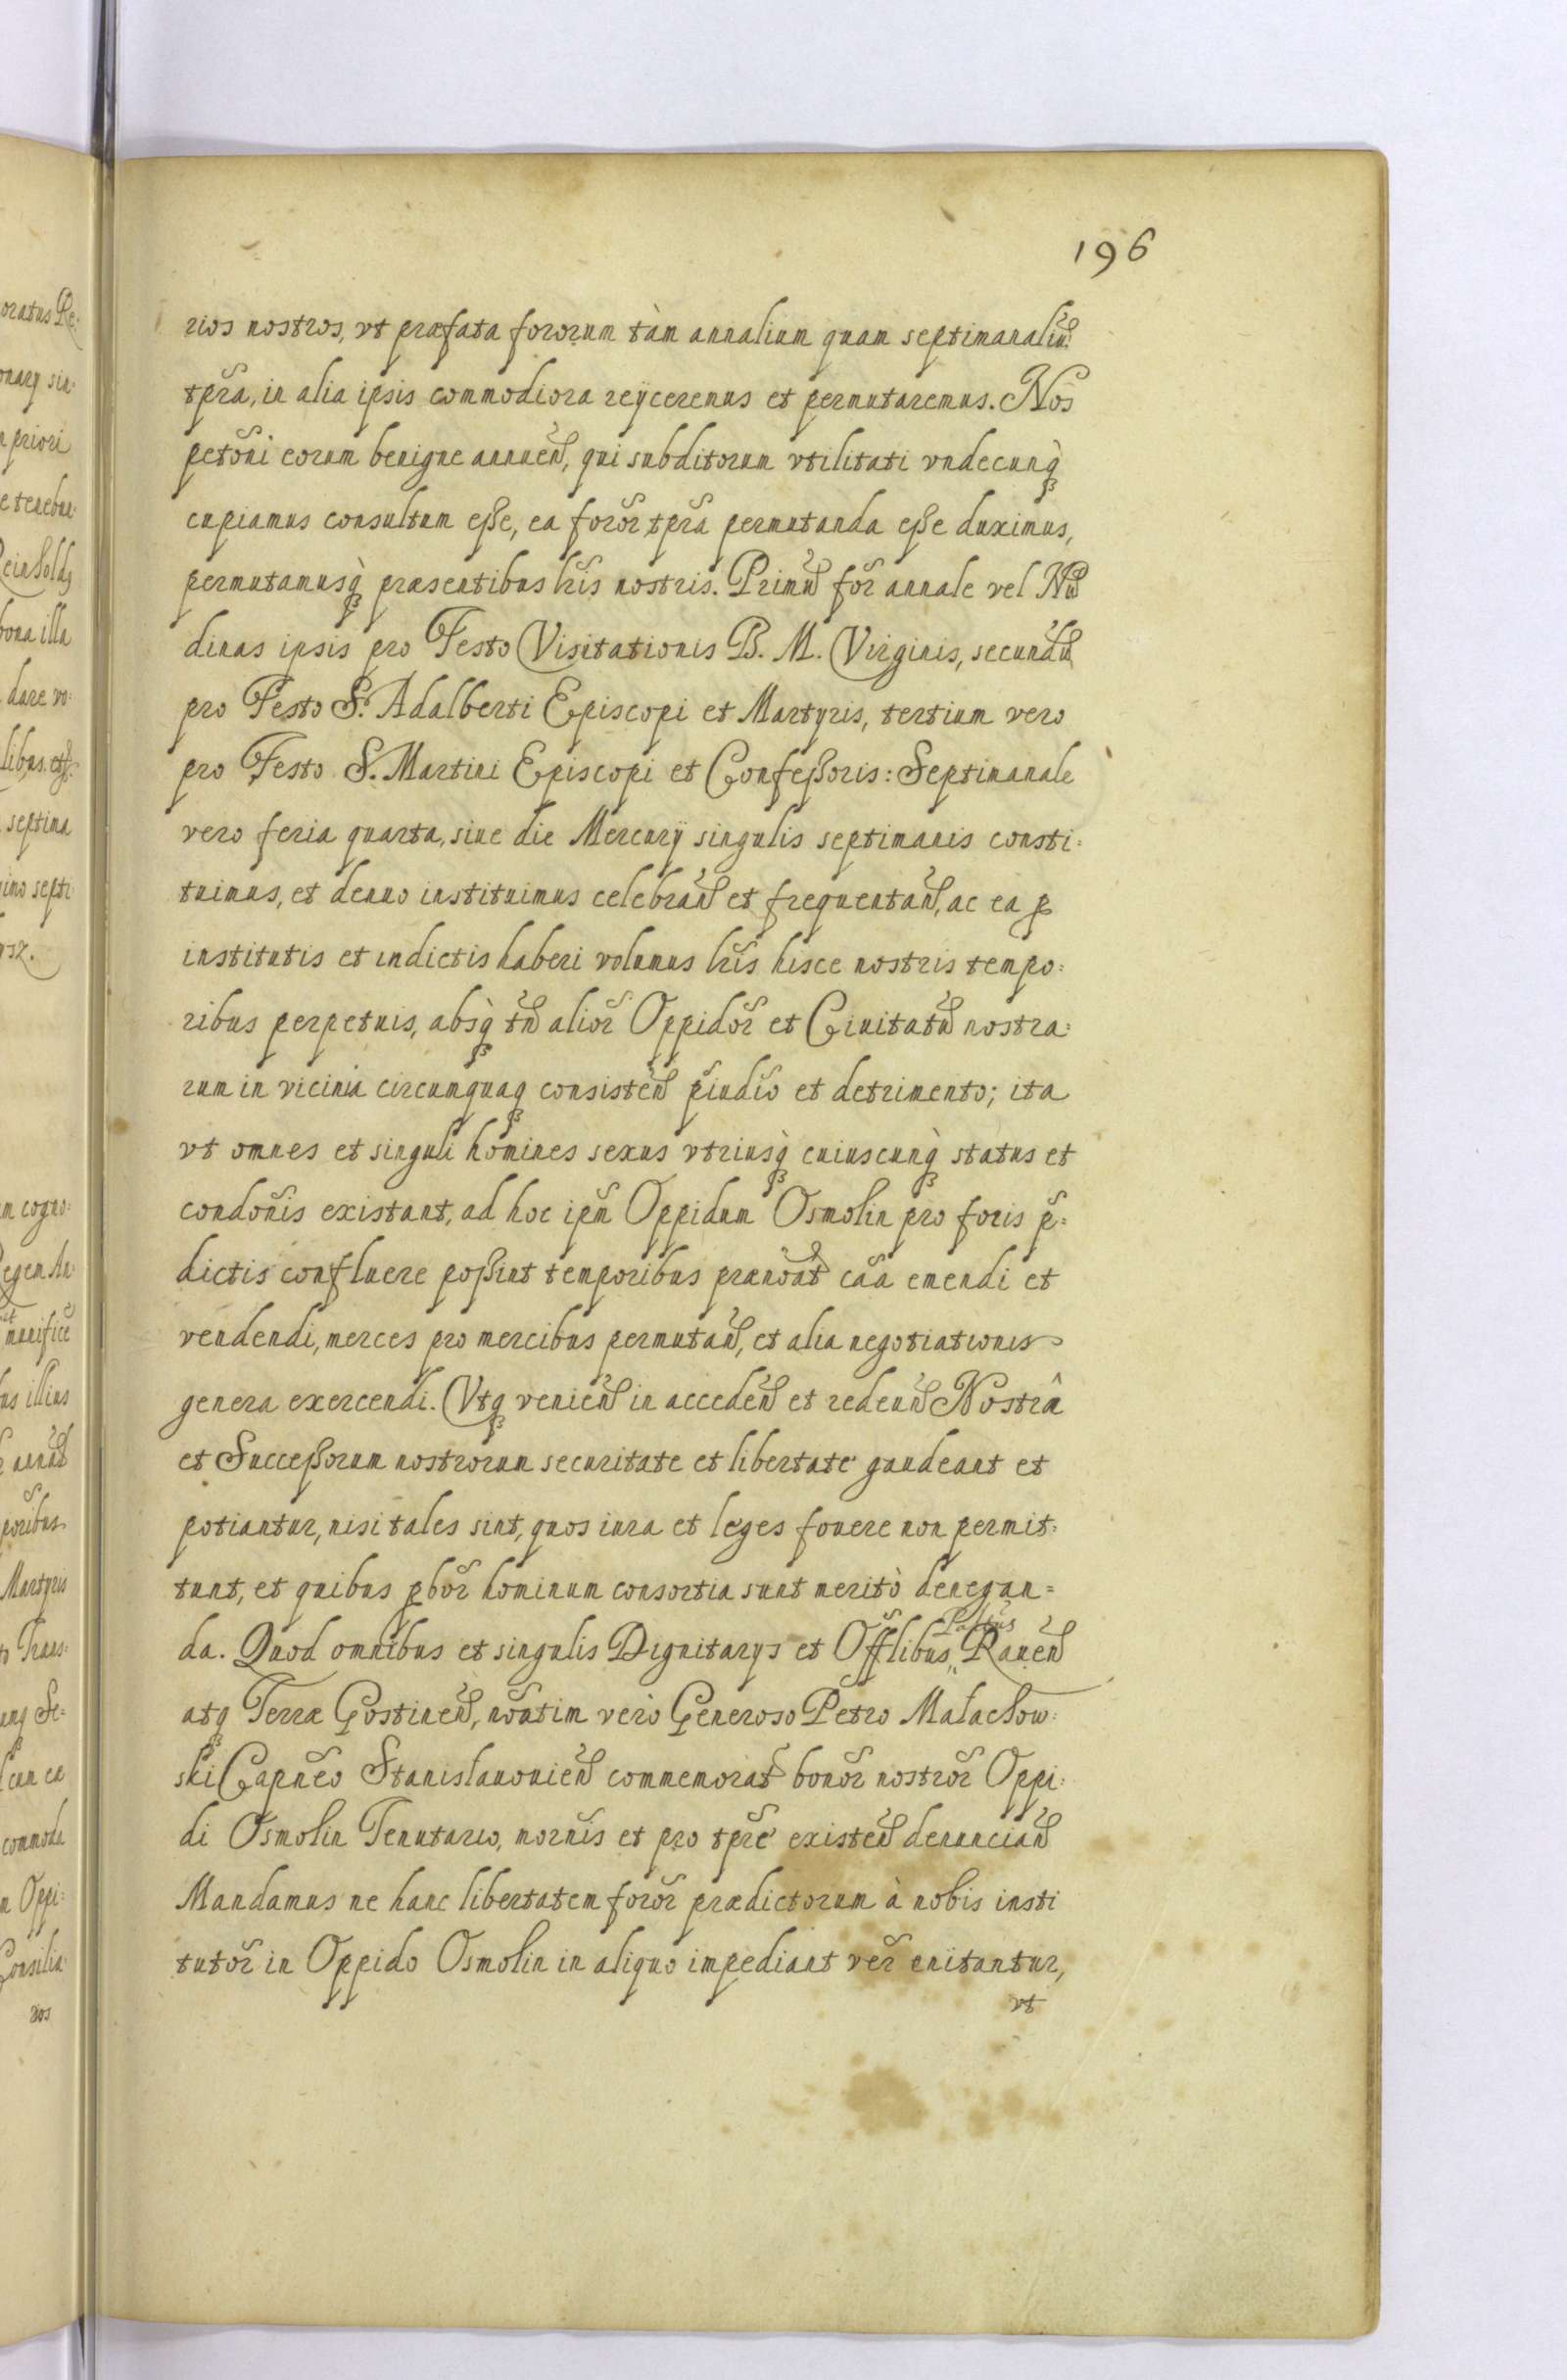 196
rios nostros, vt præfata fororum tàm annalium quam septimanaliũ
tp̃ra, in alia ipsis commodiora reÿceremus et permutaremus. Nos
petõni eorum benigne annueñ, qui subditorum vtilitati vndecunq̀ꝫ
cupiamus consultum eße, ea forõr tp̃ra permutanda eße duximus,
permutamusq̀ꝫ præsentibus lr̃is nostris. Primũ fõr annale vel Nũ
dinas ipsis pro Festo Visitationis B. M. Virginis, secundũ
pro Festo S. Adalberti Episcopi et Martyris, tertium vero
pro Festo S. Martini Episcopi et Confeßoris: Septimanale
vero feria quarta, siue die Mercurÿ singulis septimanis consti=
tuimus, et denuo instituimus celebrañ et frequentañ, ac ea ꝓ
institutis et indictis haberi volumus lr̃is hisce nostris tempo=
ribus perpetuis, absq̀ꝫ tñ aliõr Oppidõr et Ciuitatũ nostra=
rum in vicinia circumquaqꝫ consisteñ p̃iudĩo et detrimento; ita
vt omnes et singuli homines sexus vtriusq̀ꝫ cuiuscunq̀ꝫ status et
condõnis existant, ad hoc ip̃m Oppidum Osmolin pro foris p̃=
dictis confluere poßint temporibus prænõat cãa emendi et
vendendi, merces pro mercibus permutañ, et alia negotiationis
genera exercendi. Vtqꝫ venieñ in accedeñ et redeuñ Nostrâ
et Succeßorum nostrorum securitate et libertate gaudeant et
potiantur, nisi tales sint, quos iura et leges fouere non permit=
tunt, et quibus ꝓbõr hominum consortia sunt meritò denegan=
da. Quod omnibus et singulis Dignitarys et Offl̃ibus Palt̃us Raueñ
atqꝫ Terræ Gostineñ, nõatim verò Generoso Petro Małachow=
ski Capñeo Stanislauouieñ commemorat bonõr nostrõr Oppi=
di Osmolin Tenutario, mornĩs et pro tp̃re existeñ denunciañ
Mandamus ne hanc libertatem forõr prædictorum à nobis insti
tutõr in Oppido Osmolin in aliquo impediant vẽr enitantur,
vt